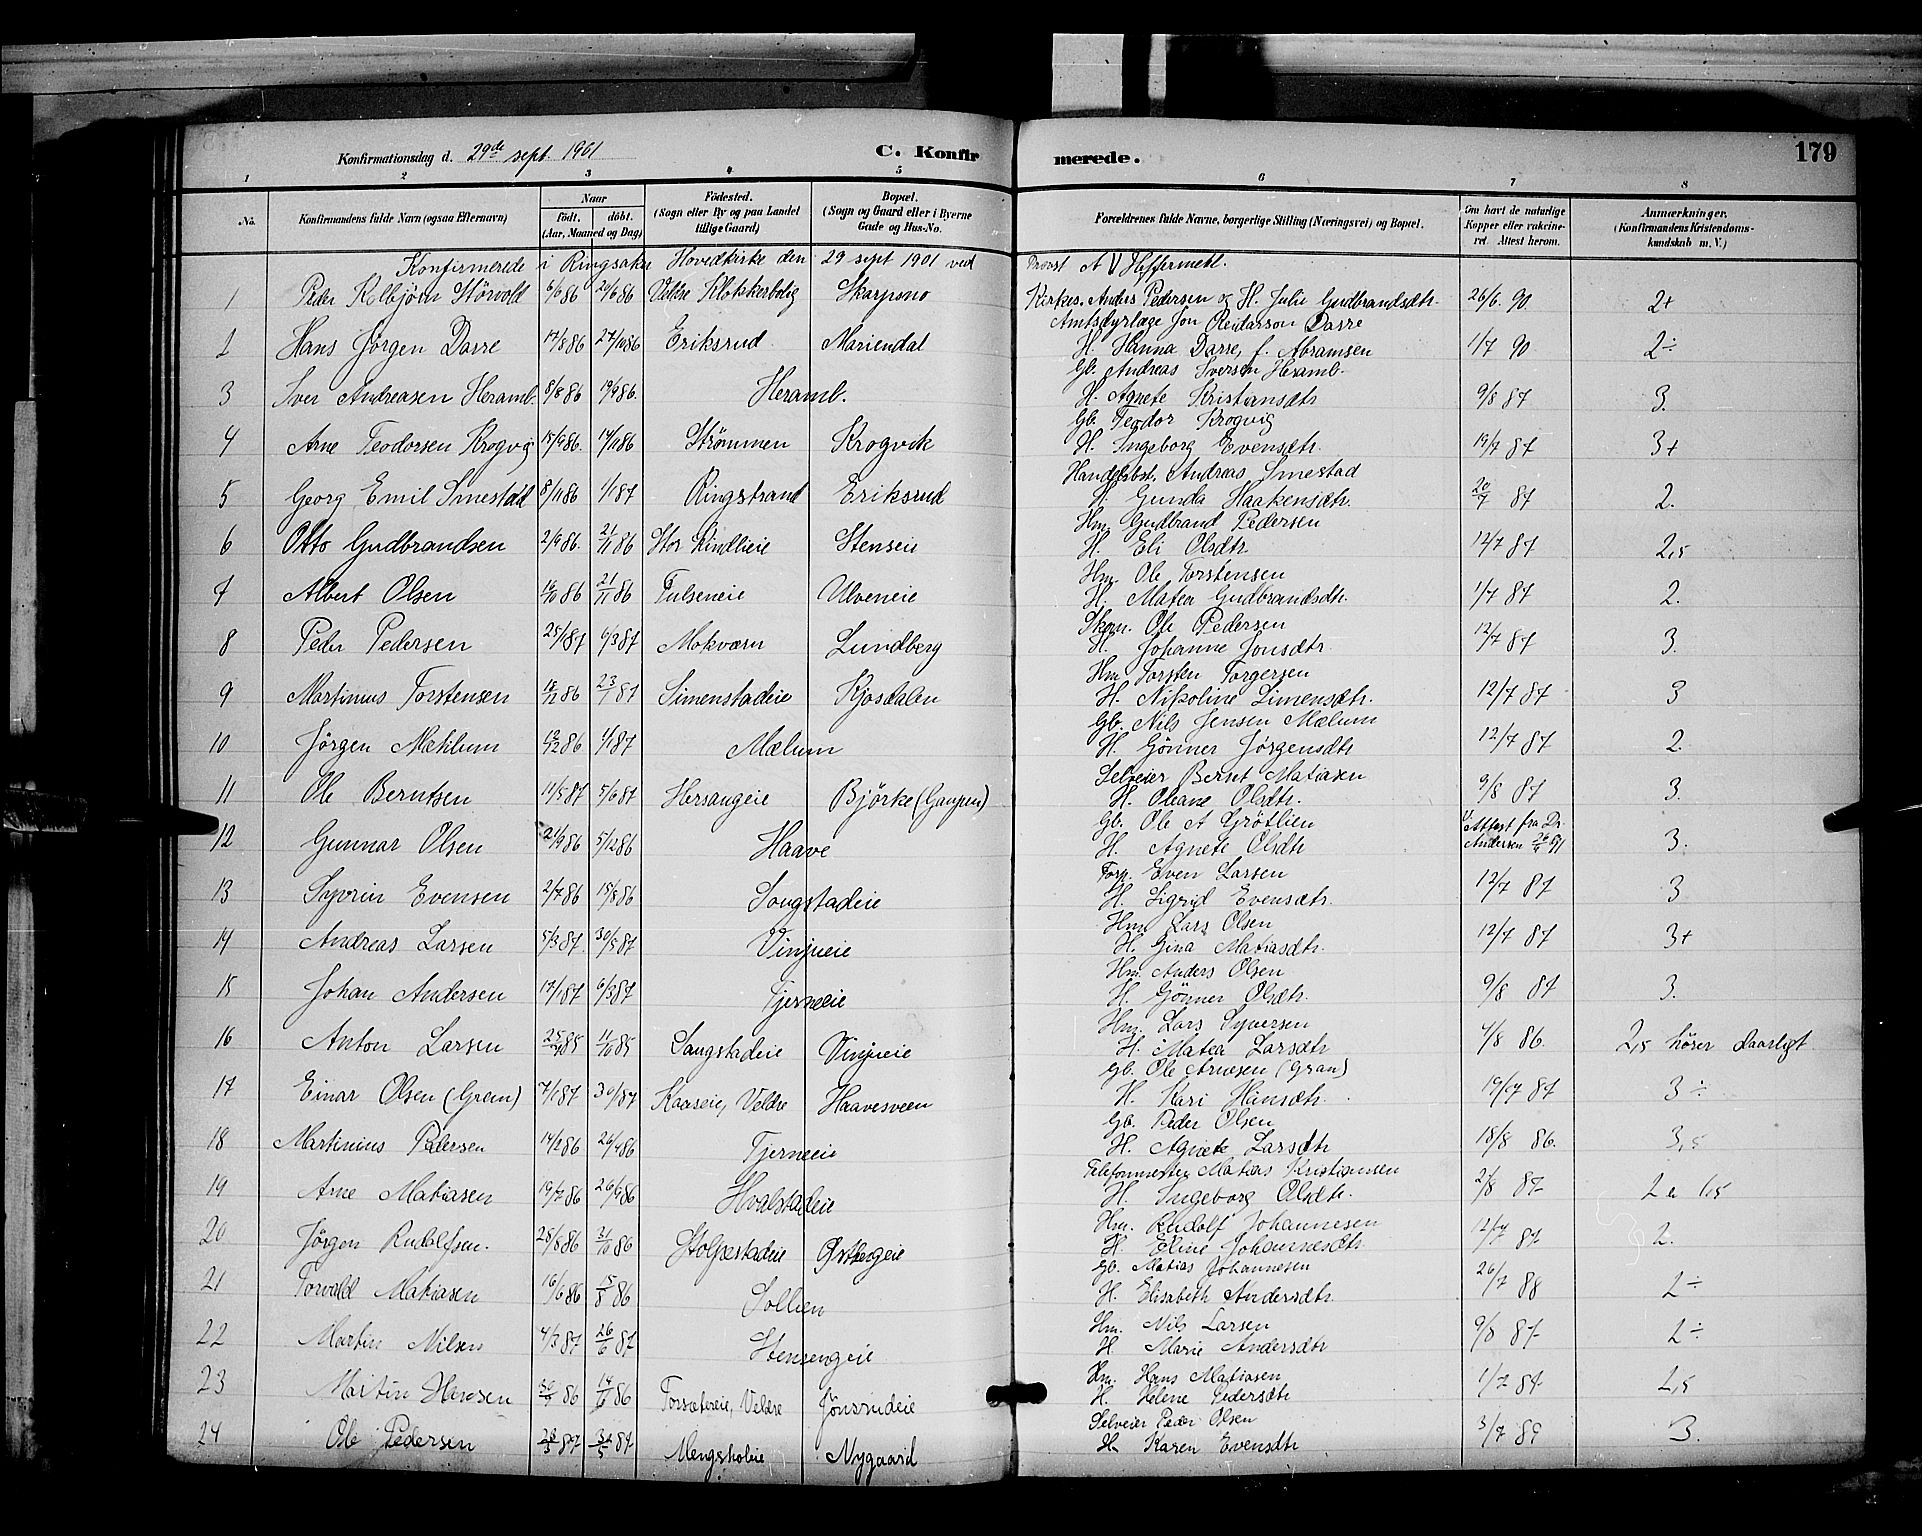 Konfirmationsdag d. 29de sept. 1901 C. Konfir merede. 179
1 2 3 4 5 6 7 8
No. Konfirmandens fulde Navn (ogsaa Efternavn) Naar født. døbt. (Aar, Maaned og Dag) Fødested. (Sogn eller By og paa Landet tillige Gaard) Bopæl. (Sogn og Gaard eller i Byerne Gade og Hus-No. Forældrenes fulde Navne, borgerlige Stilling (Næringsvei) og Bopæl. Om havt de naturlige Kopper eller vakcineret. Attest herom. Anmærkninger. (Konfirmandens Kristendomskundskab m. V.)
Konfirmerede i Ringsaker Hovedkirke den 29 sept 1901 ved Provst A V Heffermehl.
1 Peder Kolbjørn Størvold 6/6 86 20/6 86 Veldre Klokkerbolig Skarpsno Kirkes. Anders Pedersen og H. Julie Gudbrandsdtr. 26/6 90 2+
Amtsdyrlæge Jon Reidarson Darre
2 Hans Jørgen Darre 17/8 86 27/10 86 Eriksrud Mariendal H. Hanna Darre, f. Abramsen 1/7 90 2÷
Gb. Andreas Iversen Heramb.
3 Iver Andreasen Heramb. 8/8 86 19/9 86. Heramb. H. Agnete Kristiansdtr 9/8 87 3.
Gb. Teodor Krogvig
4 Arne Teodorsen Krogvig 15/9 86. 14/11 86 Strømmen Krogvik H. Ingeborg Evensdtr. 19/7 87 3+
Handelsbst. Andreas Smestad
5 Georg Emil Smestad 8/11 86 1/1 87 Ringstrand Eriksrud H. Gunda Haakensdtr. 20/7 87 2.
Hm. Gudbrand Pedersen
6 Otto Gudbrandsen 2/9 86. 21/11 86 Stor Kindlieie Stenseie H. Eli Olsdtr 12/7 87 2,5
Hm. Ole Torstensen
7 Albert Olsen 16/10 86 21/11 86 Tulseneie Ulveneie H. Matea Gudbrandsdtr. 1/7 87 2.
Skom. Ole Pedersen
8 Peder Pedersen 25/1 87 6/3 87 Mokværn Lundberg H. Johanne Jonsdtr. 12/7 87 3.
Hm Torsten Torgersen
9 Martinus Torstensen 18/12 86 23/1 87 Simenstadeie Kjosdalen H. Nikoline Simensdtr. 12/7 87 3
Gb. Nils Jensen Mælum
10 Jørgen Mæhlum 12/12 86 1/1 87 Mælum H. Gönner Jörgensdtr 12/7 87 2.
Selveier Bernt Matiasen
11 Ole Berntsen 11/5 87 5/6 87 Hersaugeie Björke (Gaupen) H. Oliane Olsdtr. 9/8 87 3.
Gb. Ole A Grötlien
12 Gunnar Olsen 21/9 86 5/12 86 Haave H. Agnete Olsdtr V. Attest fra Dr. Andersen 3.
Torp. Even Larsen
13 Syverin Evensen 2/7 86 15/8 86 Sougstadeie H. Sigrid Evensdtr. 12/7 87 3
Hm Lars Olsen
14 Andreas Larsen 5/3 87 30/5 87 Vinjueie H. Gina Matiasdtr. 12/7 87 3+
Hm. Anders Olsen
15 Johan Andersen 17/1 87 6/3 87 Tjerneeie H. Gönner Olsdtr. 9/8 87 3.
Hm. Lars Syversen
16 Anton Larsen 25/7 85 11/10 85 Saugstadeie Vinjueie H. Matea Larsdtr 4/8 86 2,5 hører daarligt
Gb. Ole Arnesen (Gran)
17 Einar Olsen (Gran) 7/1 87 30/1 87 Kaaseie, Veldre Haavesveen H. Kari Hansdtr. 19/7 87 3÷
Gb. Peder Olsen
18 Martinius Pedersen 14/2 86 26/4 86 Tjerneeie H. Agnete Larsdtr 18/8 86. 3,5
Telefonmester Matias Kristiansen
19 Arne Matiasen 19/7 86 26/9 86 Hvalstadeie H. Ingeborg Olsdtr. 2/8 87 2 a 1,5
Hm. Rudolf Johannesen
20 Jørgen Rudolfsen. 28/8 86 31/10 86 Stolpestadeie Østbergeie H. Eline Johannesdtr. 12/7 87 2.
Gb. Matias Johannesen
21 Torvald Matiasen 16/6 86 15/8 86 Sollien H. Elisabeth Andersdtr. 26/7 88 2÷
Hm. Nils Larsen
22 Martin Nilsen 4/3 87 26/6 87 Stensengeie H Marie Andersdtr 9/8 87 2÷
Hm. Hans Matiasen
23 Martin Hansen 86 86 Torsætereie, Veldre Jönsrudeie H. Helene Pedersdtr 1/7 87 2,5
Selveier Peder Olsen
24 Ole Pedersen 28/3 87 31/5 87 Mengsholeie Nygaard H. Karen Evensdtr 3/7 89 3.